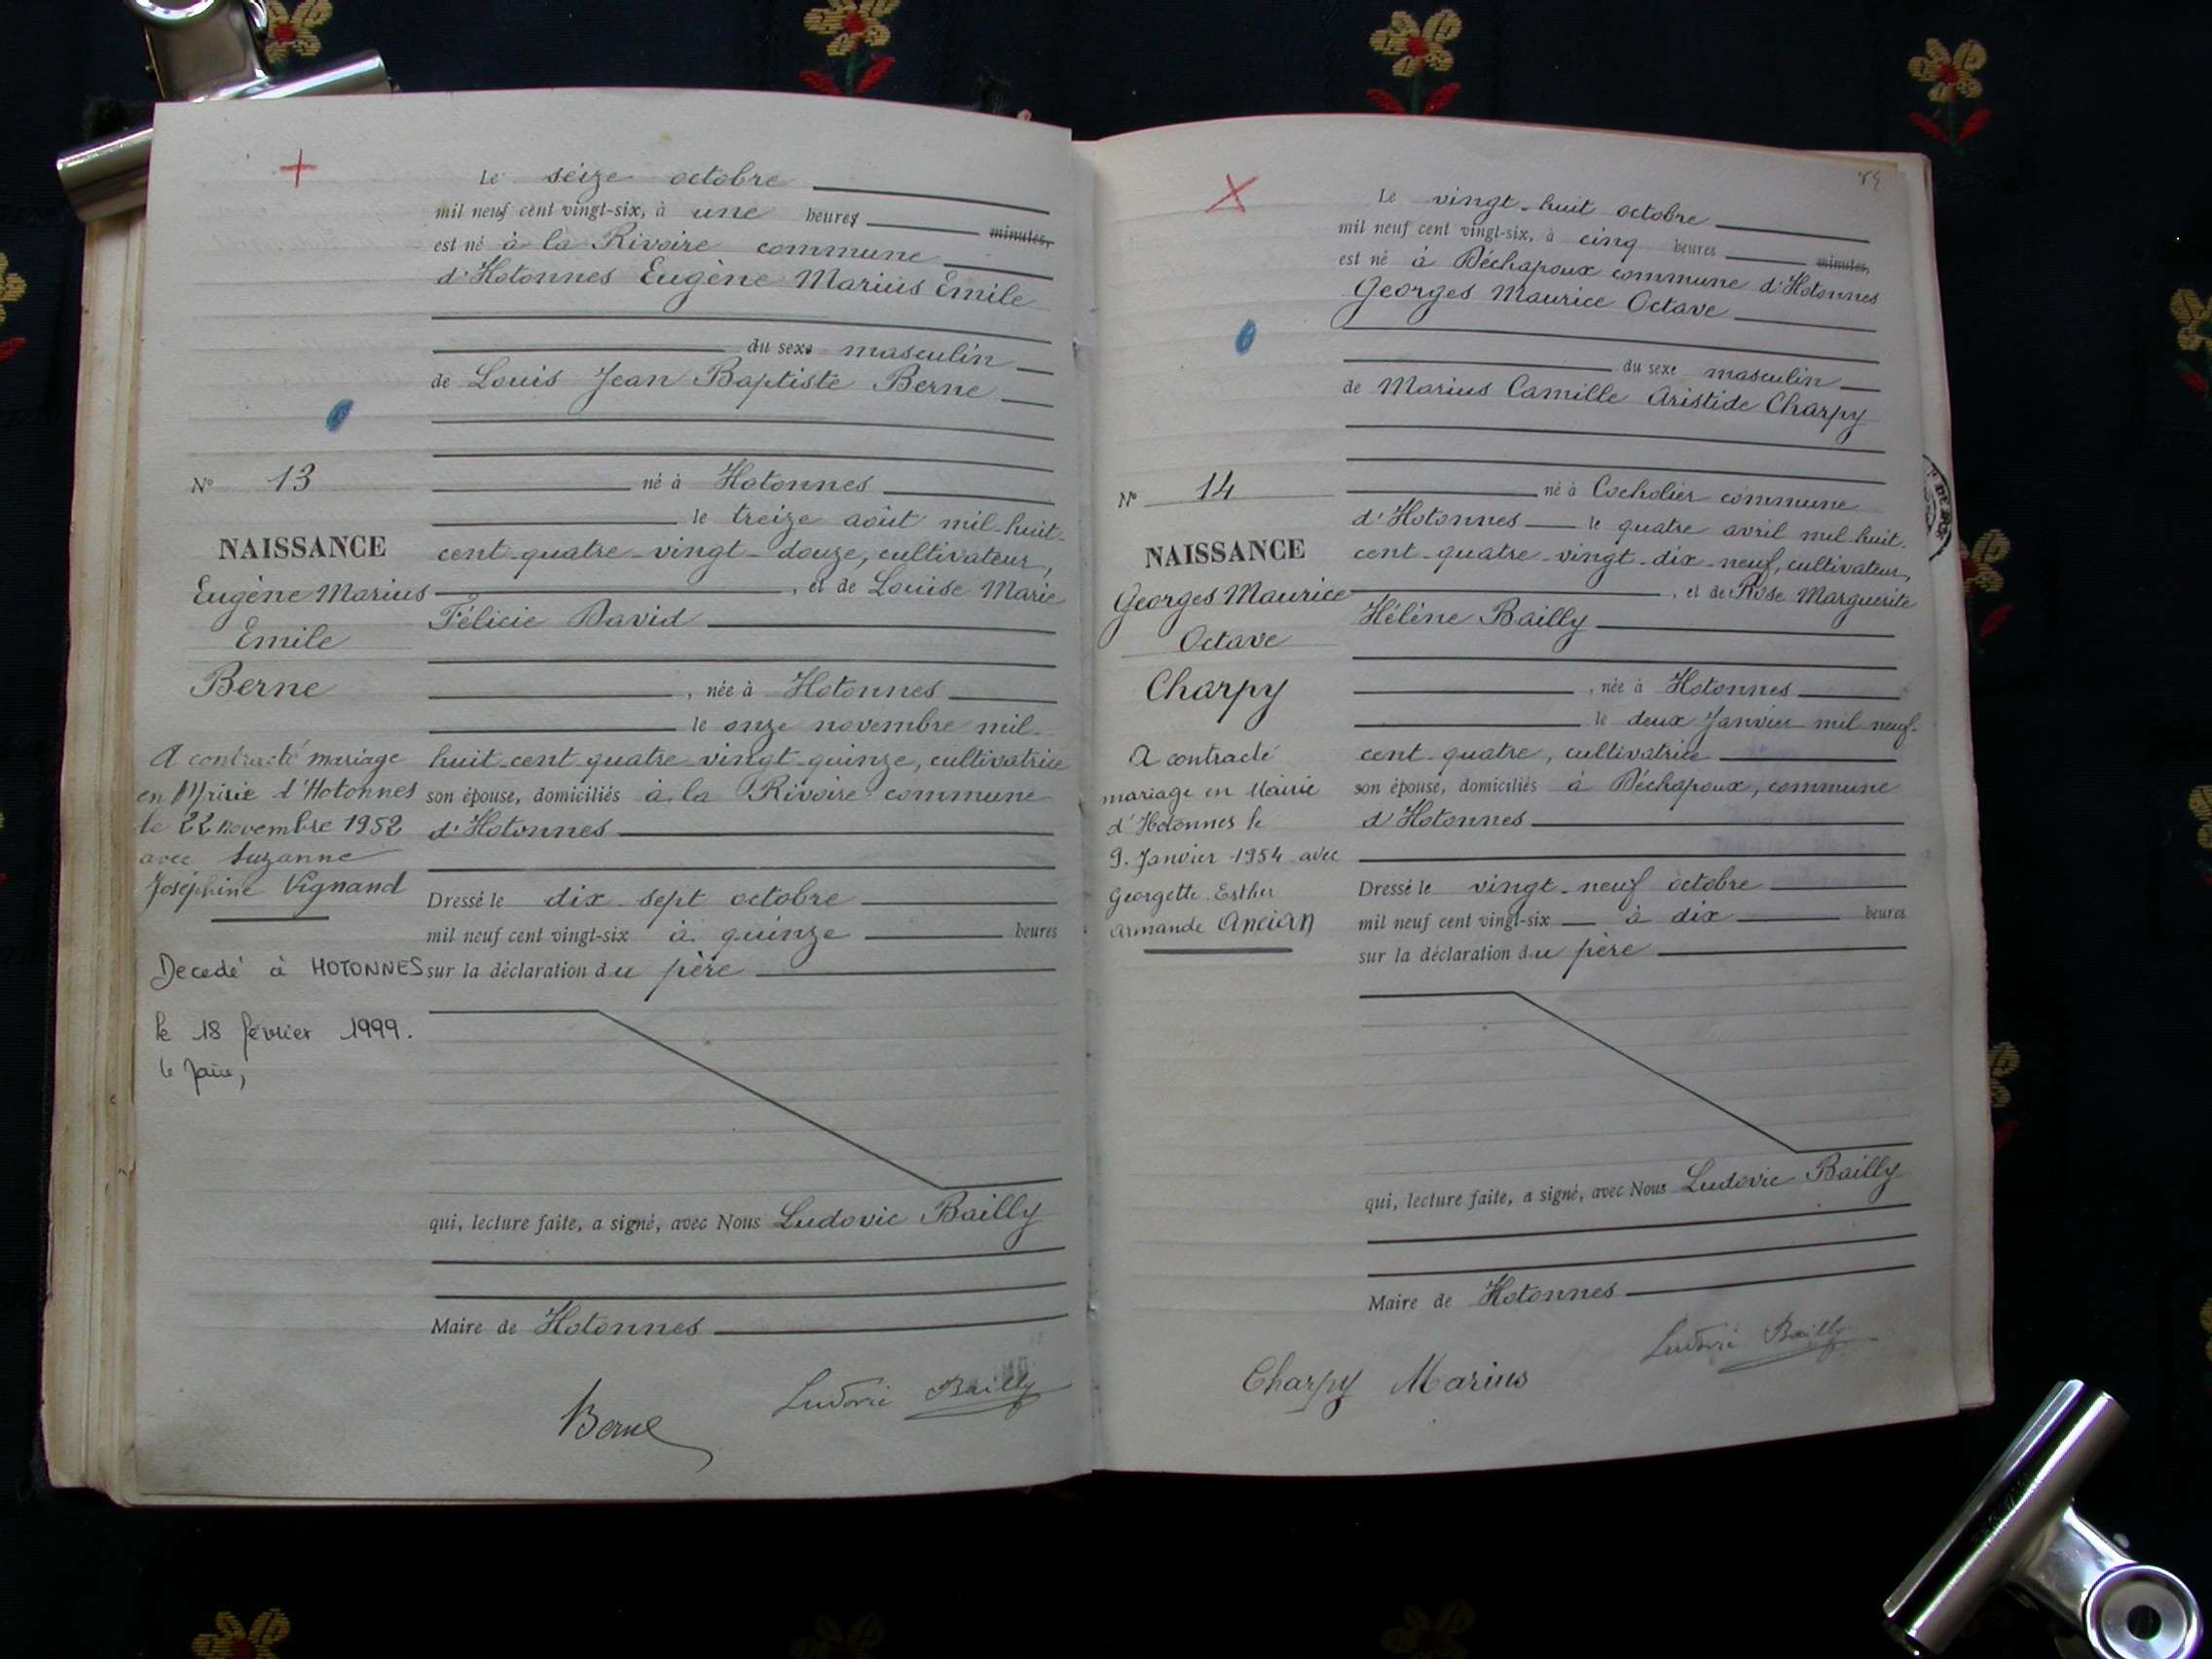 Le seize octobre
mil neuf cent vingt-six, à une heures minutes,
est né à la Rivoire commune
d'Hotonnes Eugène Marius Emile
du sexe masculin
de Louis Jean Baptiste Berne
N° 13
né à Hotonnes
le treize août mil-huit-
cent-quatre-vingt-douze, cultivateur,
NAISSANCE
Eugène Marius
Emile
Berne
, et de Louise Marie
Félicie David
, née à Hotonnes
le onze novembre mil-
huit-cent-quatre-vingt-quinze, cultivatrice
son épouse, domiciliés à la Rivoire commune
d'Hotonnes
A contracté mariage
en Mairie d'Hotonnes
le 22 novembre 1952
avec Suzanne
Joséphine Vignand
Dressé le dix-sept octobre
mil neuf cent vingt-six à quinze heures
sur la déclaration du père
Decedé à HOTONNES
le 18 février 1999.
le Maire,
qui, lecture faite, a signé, avec Nous Ludovic Bailly
Maire de Hotonnes
Berne
Ludovic Bailly
Le vingt-huit octobre
mil neuf cent vingt-six, à cinq heures minutes,
est né à Béchapoux commune d'Hotonnes
Georges Maurice Octave
du sexe masculin
de Marius Camille Aristide Charpy
N° 14
né à Cocholier commune
d'Hotonnes le quatre avril mil-huit-
cent-quatre-vingt-dix-neuf, cultivateur,
NAISSANCE
Georges Maurice
Octave
Charpy
, et de Rose Marguerite
Hélène Bailly
, née à Hotonnes
le deux Janvier mil-neuf-
cent-quatre, cultivatrice
son épouse, domiciliés à Béchapoux, commune
d'Hotonnes
A contracté
mariage en Mairie
d'Hotonnes le
9. Janvier 1954 avec
Georgette Esther
Armande ANCIAN
Dressé le vingt-neuf octobre
mil neuf cent vingt-six à dix heures
sur la déclaration du père
qui, lecture faite, a signé, avec Nous Ludovic Bailly
Maire de Hotonnes
Charpy Marius
Ludovic Bailly